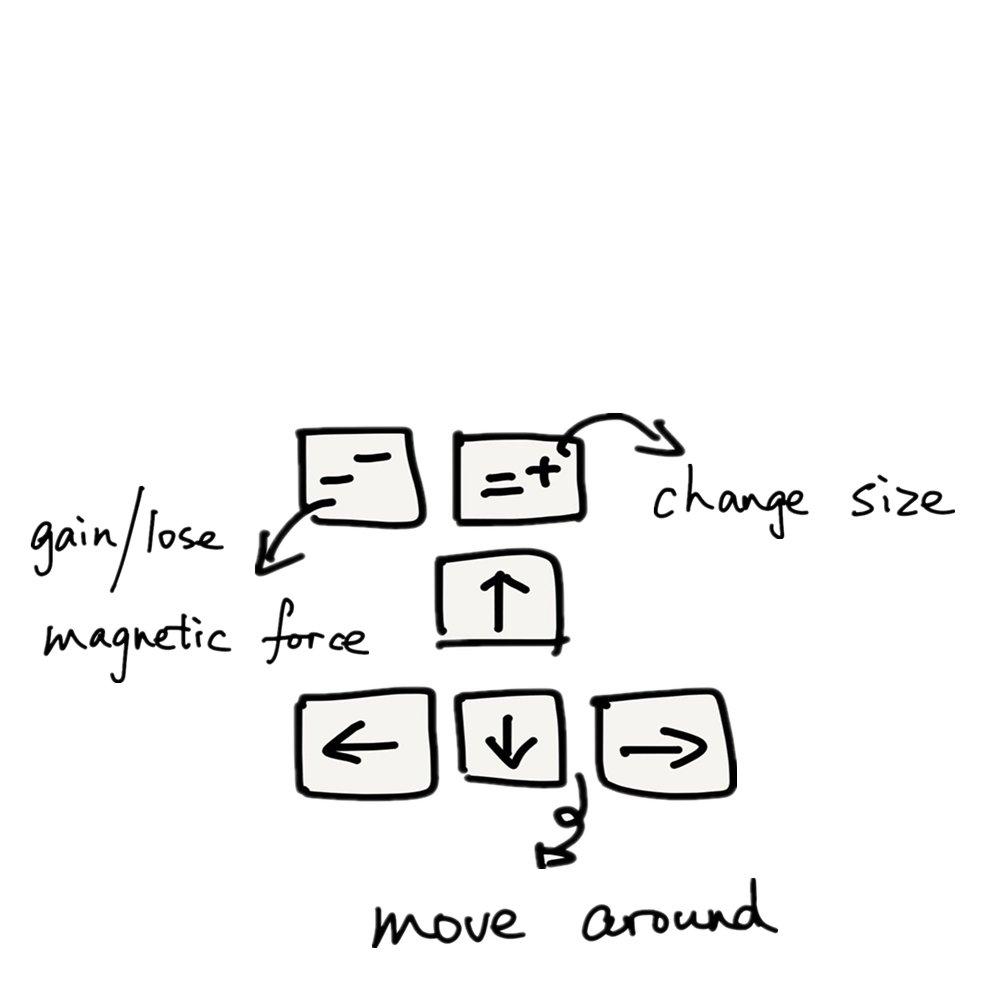 - _
= +
change size
gain/lose
magnetic force
↑
← ↓ →
move around